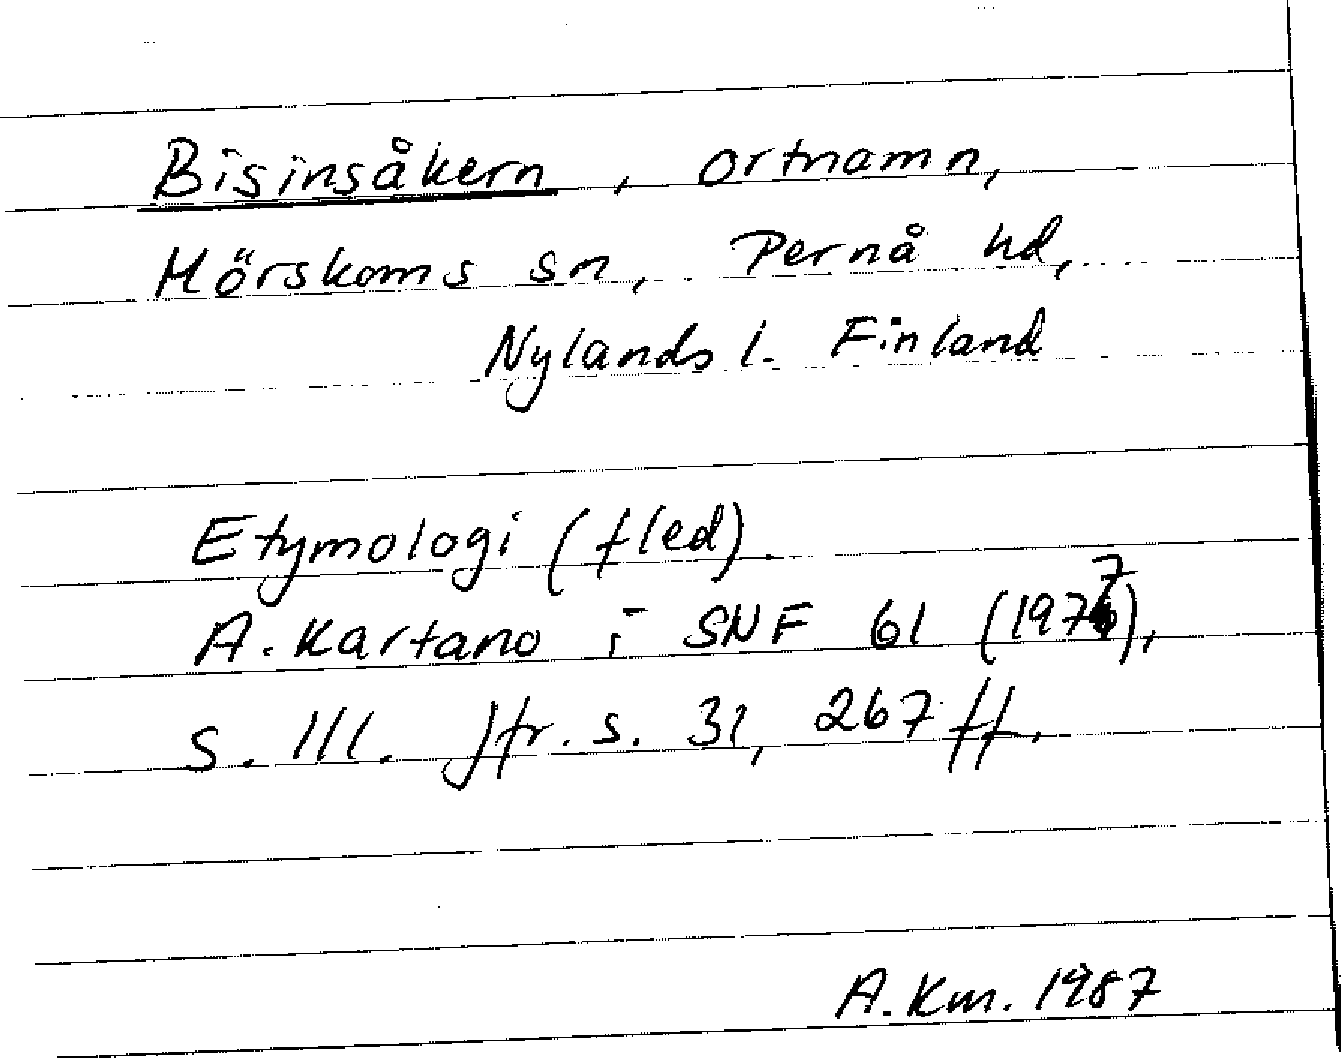 Bisinsåkern, ortnamn,
Mörskoms sn, Pernå hd,
Nylands l. Finland
Etymologi (fled).
A. Kartano i SNF 61 (1977),
s. 111. Jfr. s. 31, 267 ff.
A. Km. 1987